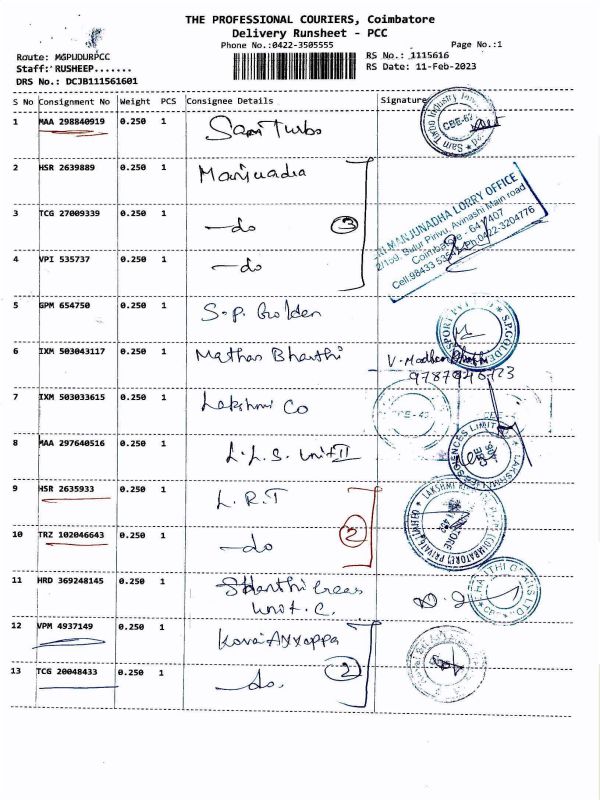 THE PROFESSIONAL COURIERS, Coimbatore
Delivery Runsheet - PCC
Phone No.:0422-3505555
Page No.:1
Route: MGPUDURPCC
Staff: RUSHEEP.......
DRS No.: DCJB111561601
RS No.: 1115616
RS Date: 11-Feb-2023
S No Consignment No Weight PCS Consignee Details Signature
1 MAA 298840919 0.250 1 Sam Turbo
CBE-62
2 HSR 2639889 0.250 1 Manjunadha
3 TCG 27009339 0.250 1 -do 3
4 VPI 535737 0.250 1 -do
SRI MANJUNADHA LORRY OFFICE
2/159, Sulur Pirivu, Avinashi Main road
Coimbatore - 641 407
Ph:0422-3204776
5 GPM 654750 0.250 1 S.P. Golden
6 IXM 503043117 0.250 1 Mathan Bharthi
7 IXM 503033615 0.250 1 Lakshmi Co
8 MAA 297640516 0.250 1 L.L.S. Unit II
9 HSR 2635933 0.250 1 L.R.T
10 TRZ 102046643 0.250 1 -do 2
11 HRD 369248145 0.250 1 Shanthi Gears
unit. C.
12 VPM 4937149 0.250 1 Kovai Ayyappa
13 TCG 20048433 0.250 1 -do. 2